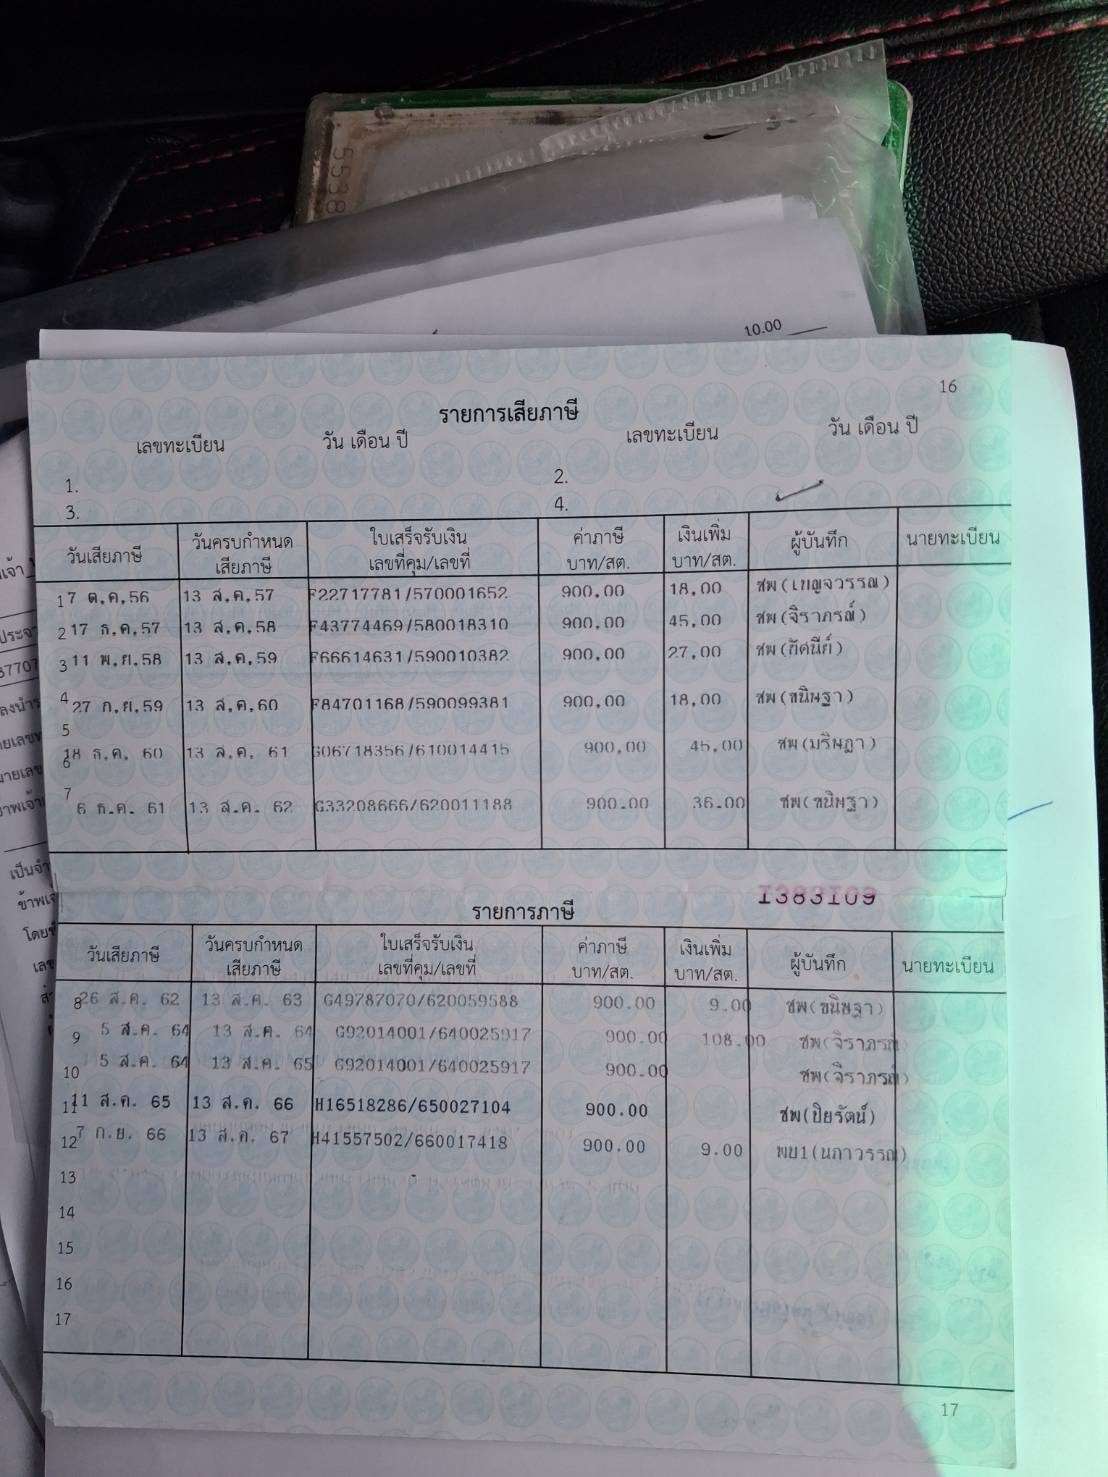 5538
10.00
16
รายการเสียภาษี
เลขทะเบียน วัน เดือน ปี เลขทะเบียน วัน เดือน ปี
1. 2.
3. 4.
วันเสียภาษี วันครบกำหนดเสียภาษี ใบเสร็จรับเงิน เลขที่คุม/เลขที่ ค่าภาษี บาท/สต. เงินเพิ่ม บาท/สต. ผู้บันทึก นายทะเบียน
17 ต.ค.56 13 ส.ค.57 F22717781/570001652 900.00 18.00 ชพ(เบญจวรรณ)
2 17 ธ.ค.57 13 ส.ค.58 F43774469/580018310 900.00 45.00 ชพ(จิราภรณ์)
3 11 พ.ย.58 13 ส.ค.59 F66614631/590010382 900.00 27.00 ชพ(ทัศนีย์)
4 27 ก.ย.59 13 ส.ค.60 F84701168/590099381 900.00 18.00 ชพ(ขนิษฐา)
5
6 18 ธ.ค. 60 13 ส.ค. 61 G06718356/610014415 900.00 45.00 ชพ(มริษฎา)
7 6 ธ.ค. 61 13 ส.ค. 62 G33208666/620011188 900.00 36.00 ชพ(ขนิษฐา)
1383109
รายการภาษี
วันเสียภาษี วันครบกำหนดเสียภาษี ใบเสร็จรับเงิน เลขที่คุม/เลขที่ ค่าภาษี บาท/สต. เงินเพิ่ม บาท/สต. ผู้บันทึก นายทะเบียน
8 26 ส.ค. 62 13 ส.ค. 63 G49787070/620059588 900.00 9.00 ชพ(ขนิษฐา)
9 5 ส.ค. 64 13 ส.ค. 64 G92014001/640025917 900.00 108.00 ชพ(จิราภรณ์)
10 5 ส.ค. 64 13 ส.ค. 65 G92014001/640025917 900.00 ชพ(จิราภรณ์)
11 11 ส.ค. 65 13 ส.ค. 66 H16518286/650027104 900.00 ชพ(ปิยรัตน์)
12 7 ก.ย. 66 13 ส.ค. 67 H41557502/660017418 900.00 9.00 พบ1(นภาวรรณ)
13
14
15
16
17
17